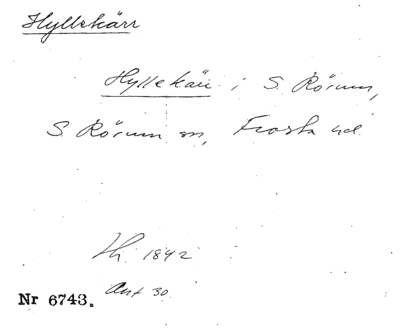 Hyllekärr
Hyllekärr i S. Rörum,
S Rörum sn, Frosta hd.
Th. 1842
Ant 30
Nr 6743.